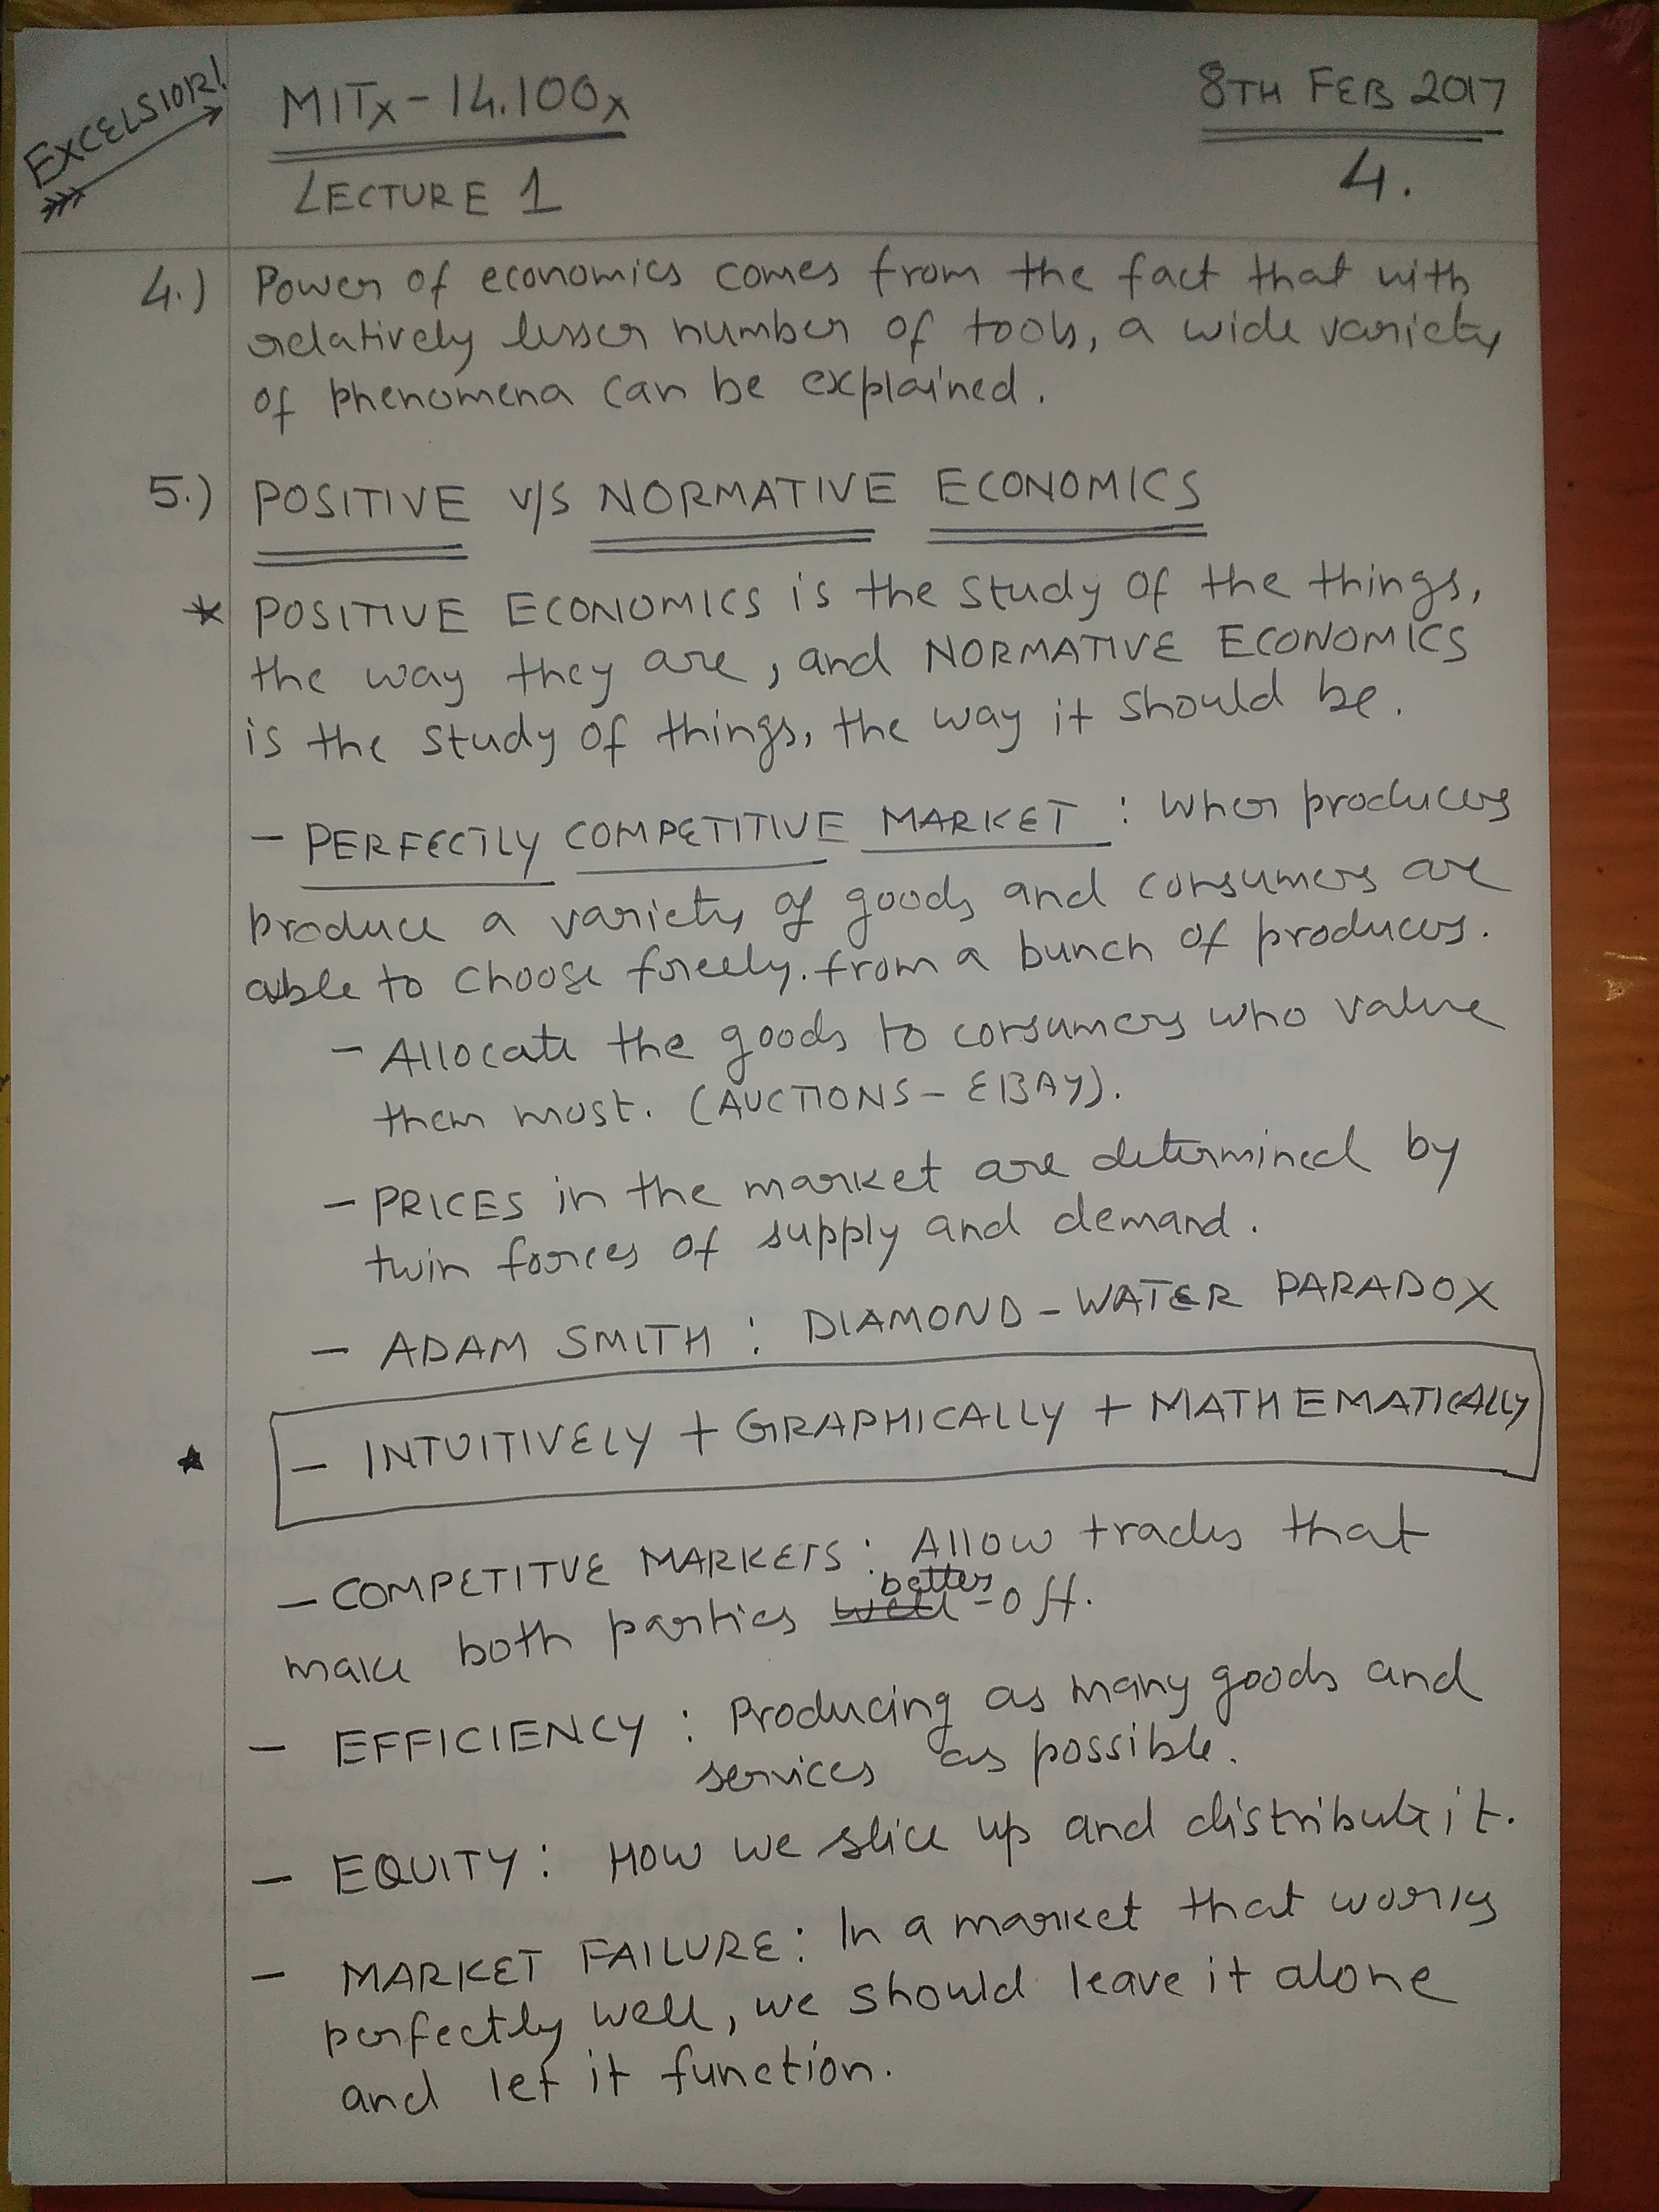 EXCELSIOR!
MITx - 14.100x
8TH FEB 2017
LECTURE 1
4.
4.) Power of economics comes from the fact that with
relatively lesser number of tools, a wide variety
of phenomena can be explained.
5.) POSITIVE V/S NORMATIVE ECONOMICS
* POSITIVE ECONOMICS is the study of the things,
the way they are, and NORMATIVE ECONOMICS
is the study of things, the way it should be.
- PERFECTLY COMPETITIVE MARKET : When producers
produce a variety of goods and consumers are
able to choose freely. from a bunch of producers.
- Allocate the goods to consumers who value
them most. (AUCTIONS - EBAY).
- PRICES in the market are determined by
twin forces of supply and demand.
- ADAM SMITH : DIAMOND - WATER PARADOX
★ - INTUITIVELY + GRAPHICALLY + MATHEMATICALLY
- COMPETITVE MARKETS : Allow trades that
better
make both parties well - off.
- EFFICIENCY : Producing as many goods and
services as possible.
- EQUITY : How we slice up and distribute it.
- MARKET FAILURE : In a market that works
perfectly well, we should leave it alone
and let it function.